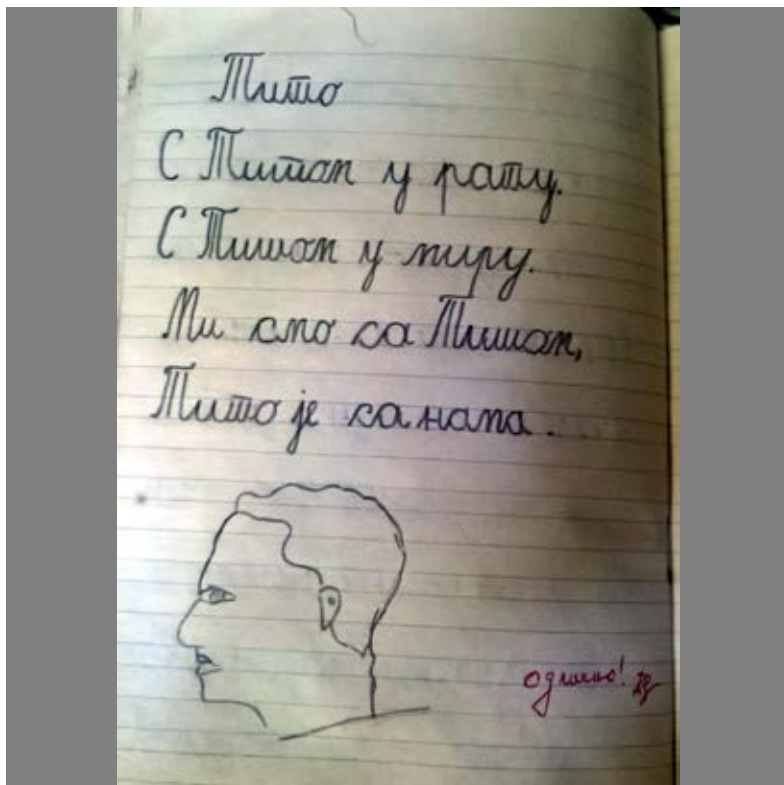 Тито
С Титом у рату.
С Титом у миру.
Ми смо са Титом,
Тито је са нама.
одлично!